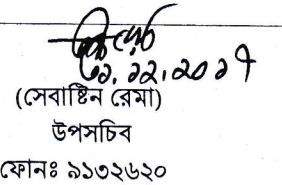 ৩১.১২.২০১৭
(সেবাষ্টিন রেমা)
উপসচিব
ফোনঃ ৯১৩২৬২০